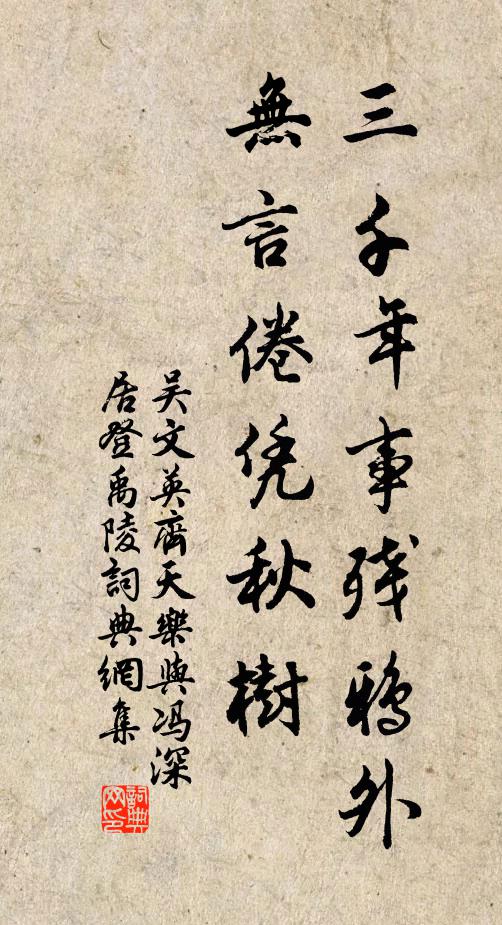 三千年事残鴉外
無言倦凭秋樹
吴文英齊天樂與冯深
居登禹陵詞典網集
詞典网印